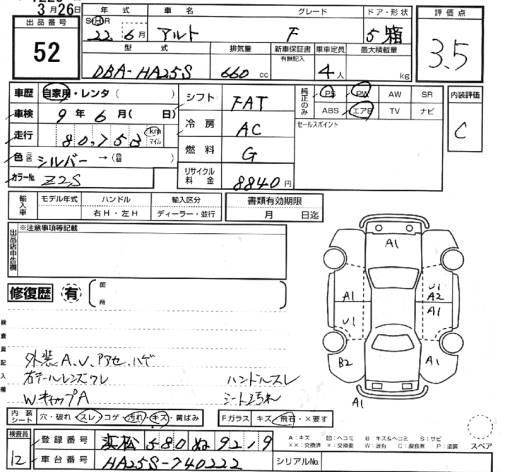 3月26日
出品番号 52
年式 22年6月
車名 アルト
グレード F
ドア・形状 5 箱
評価点 3.5
型式 DBA-HA25S
排気量 660cc
新車保証書 有無記入
乗車定員 4人
最大積載量 kg
車歴 自家用・レンタ( )
車検 9年6月( 日)
走行 80,753 km マイル
色 シルバー →( )
カラーNo. Z2S
シフト FAT
冷房 AC
燃料 G
リサイクル料金 8840円
純正のみ PS PW AW SR
ABS エアB TV ナビ
セールスポイント
内装評価 C
輸入車 モデル年式 ハンドル 右H・左H 輸入区分 ディーラー・並行
書類有効期限 月 日迄
出品店申告欄 ※注意事項等記載
修復歴 有 箇所
検査員記入欄
外装A、U、アセ、ハゲ
カラールレンズワレ ハンドルスレ
WキャップA シート汚れ
A1
A1 U1 A2
U1 A1
B2 A1
A1
内装シート 穴・破れ スレ コゲ 汚れ キズ 黄ばみ
Fガラス キズ 飛石・×要す
スペア
検査員 12
登録番号 580 ぬ 9219
車台番号 HA25S-740222
シリアルNo.